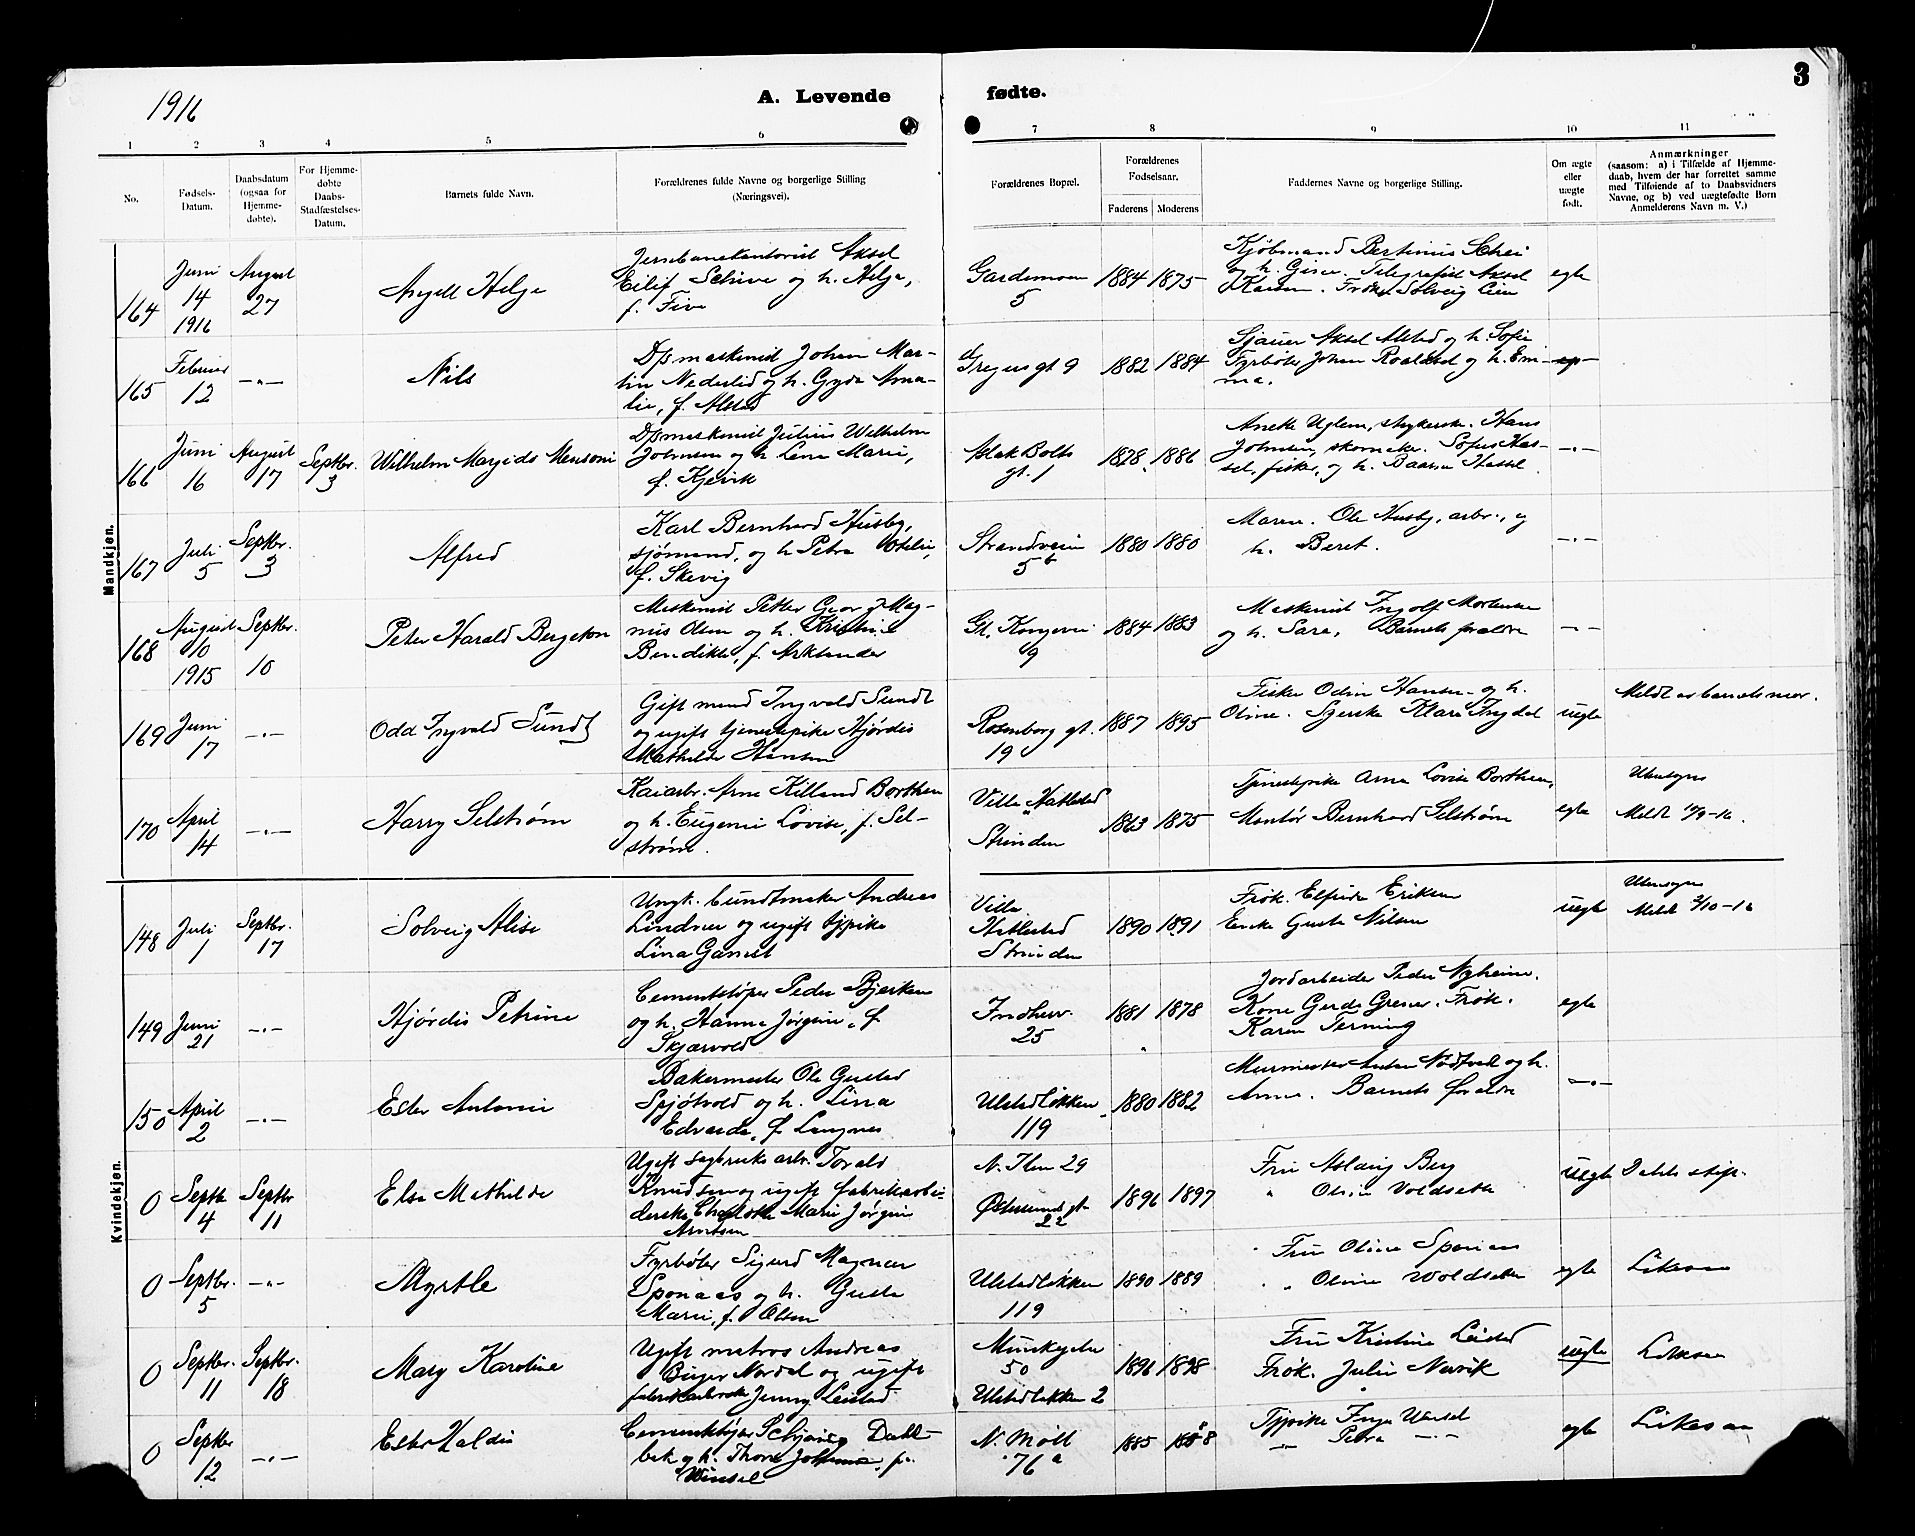 1916
A. Levende fødte.
3
1 2 3 4 5 6 7 8 9 10 11
No.
Fødsels-
Datum.
Daabsdatum
(ogsaa for
Hjemme-
døbte).
For Hjemme-
døbte
Daabs-
Stadfæstelses-
Datum.
Barnets fulde Navn.
Forældrenes fulde Navne og borgerlige Stilling
(Næringsvei).
Forældrenes Bopæl.
Forældrenes
Fødselsaar.
Faderens Moderens
Faddernes Navne og borgerlige Stilling.
Om ægte
eller
uægte
født.
Anmærkninger
(saasom: a) i Tilfælde af Hjemme-
daab, hvem der har forrettet samme
med Tilføiende af to Daabsvidners
Navne, og b) ved uægtefødte Børn
Anmelderens Navn m. V.)
Mandkjøn.
164
Juni
14
1916
August
27
Helge
Aksel
Eilif Schive og h. Helga,
f. Five
Gardemoen
5
1884 1875
Kjøbmand Bertinius Schei
og h. Telegrafist Aksel
Frøken Solveig
egte
165
Februar
12
-"-
Nils
D/s maskinist Johan Mar-
tin Nederlid og h. Gyda Ama-
lie, f. Alstad
Gregusgt 9
1882 1884
Sjauer Aksel Alstad og h. Sofie
Fyrbøter Johan og h. Em-
ma.
166
Juni
16
August
17
Septbr.
3
Wilhelm Margido
D/s maskinist Julius Wilhelm
Johnsen og h Lina Marie,
f. Kjervik
Aslak Bolts
gt. 1
1878 1886
Uglem, strykerske. Hans
Johnsen, skomaker. Sofus Has-
sel, fisker, og h. Hassel
-"-
167
Juli
5
Septbr.
3
Alfred
Karl Bernhard Husby,
sjømand, og h Petra
f. Skevig
Strandveien
5 b
1880 1880
Moren. Ole Husby, arb., og
h. Beret.
-"-
168
August
10
1915
Septbr.
10
Peter Harald Bergeton
Maskinist Petter Georg Mag-
nus Olsen og h.
Bendikte, f. Arklander
Gl. Kongevei
9
1884 1883
Maskinist Ingolf Mortensen
og h. Sara, Barnets forældre
-"-
169
Juni
17
-"-
Odd Ingvald Sundt
Gift mand Ingvald Sundt
og ugift tjenestepike Hjørdis
Mathilde Hansen
Rosenborg gt.
19
1887 1895
Fisker Odin Hansen og h.
Oline. Syerske Klara
uegte
Meldt av barnets mor.
170
April
14
-"-
Harry Selstrøm
Kaiarb. Arne Killand Borthen
og h. Eugenie Lovise, f. Sel-
strøm.
Villa Hatlestad
Strinden
1863 1875
Tjenestepike Anna Lovise Borthen,
Montør Bernhard Selstrøm
egte
Utensogns
Meldt 19/9-16.
Kvindekjøn.
148
Juli
1
Septbr.
17
Solveig Alise
Ungk. buntmaker Andreas
og ugift tjpike
Lina
Villa
Hatlestad
Strinden
1890 1891
Frøk. Elfrida Eriksen
Enke Gusta Nilsen
uegte
Utensogns
Meldt 2/10-16
149
Juni
21
-"-
Hjørdis Petrine
Cementstøper Peder Bjerkan
og h. Hanna Jørgine, f.
Skjærvold
Indherr.
25
1881 1878
Jordarbeider Peder Nyheim.
Kone Gerda Frøk.
Karen Terning
egte
150
April
2
-"-
Ester Antonie
Bakermester Ole Gustad
Spjøtvold og h. Lina
Edvarda, f. Langnes
Ulstadløkken
119
1880 1882
Murmester Anton Nødtvedt og h.
Anna. Barnets forældre
-"-
0
Septbr
4
Septbr
11
Elsa Mathilde
Ugift sagbruks arb. Torald
Knudsen og ugift fabrikarbei-
derske Charlotte Marie Jørgine
Arntsen
N. Ilen 29
Østersunds gt.
22
1896 1897
Fru Aslaug Berg
" Oline Voldseth
uegte
0
Septbr.
5
-"-
Myrtle
Fyrbøter Sigurd Magnar
Sponaas og h. Gusta
Marie, f. Olsen
Ulstadløkken
119
1890 1889
Fru Oline Sponaas
" Oline Woldseth
egte
Likesaa
0
Septbr.
11
Septbr.
18
Mary Karoline
Ugift matros Andreas
Birger Nordal og ugift
fabrikarbeiderske Jenny Leistad
Munkegaten
50
Ulstadløkken 2
1896 1898
Fru Kristine Leistad
Frøk. Julie Nervik
uegte
Likesaa
0
Septbr
12
-"-
Ester Haldis
Cementstøper Dahl-
bak og h. Thora Johanna, f.
Wensel
N. Møll
76 a
1885 1888
Tjpike Inga Wensel
-"- Petra -"-
egte
Likesaa